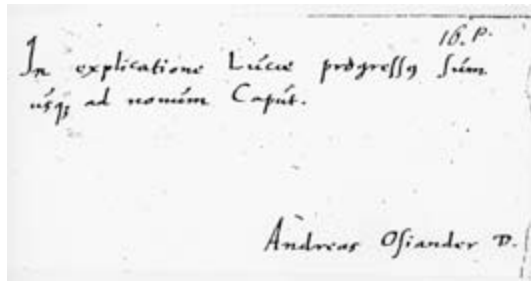 16. p.
In explicatione Lucæ progressꝰ sum
usqꝫ ad nonum Caput.
Andreas Osiander D.